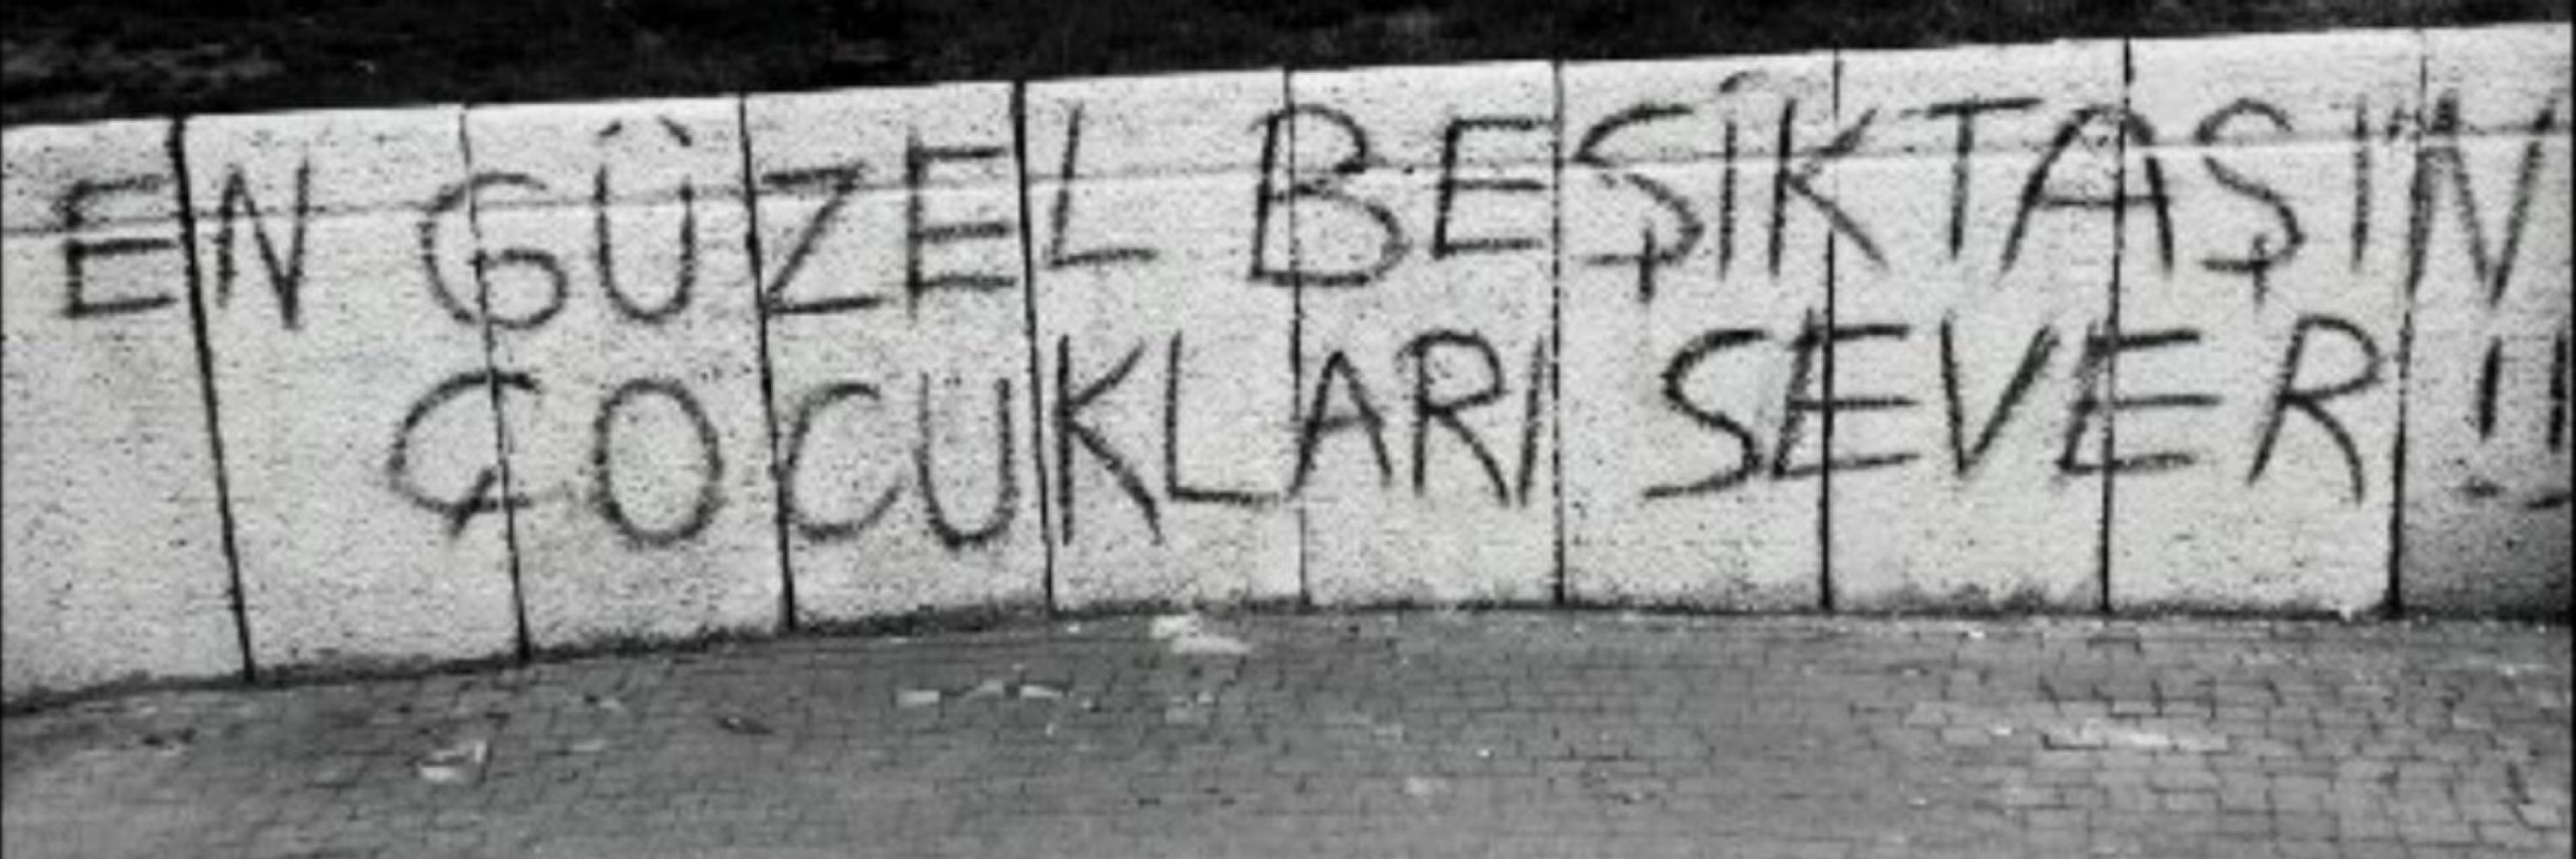 EN GÜZEL BEŞİKTAŞIN
ÇOCUKLARI SEVER !!